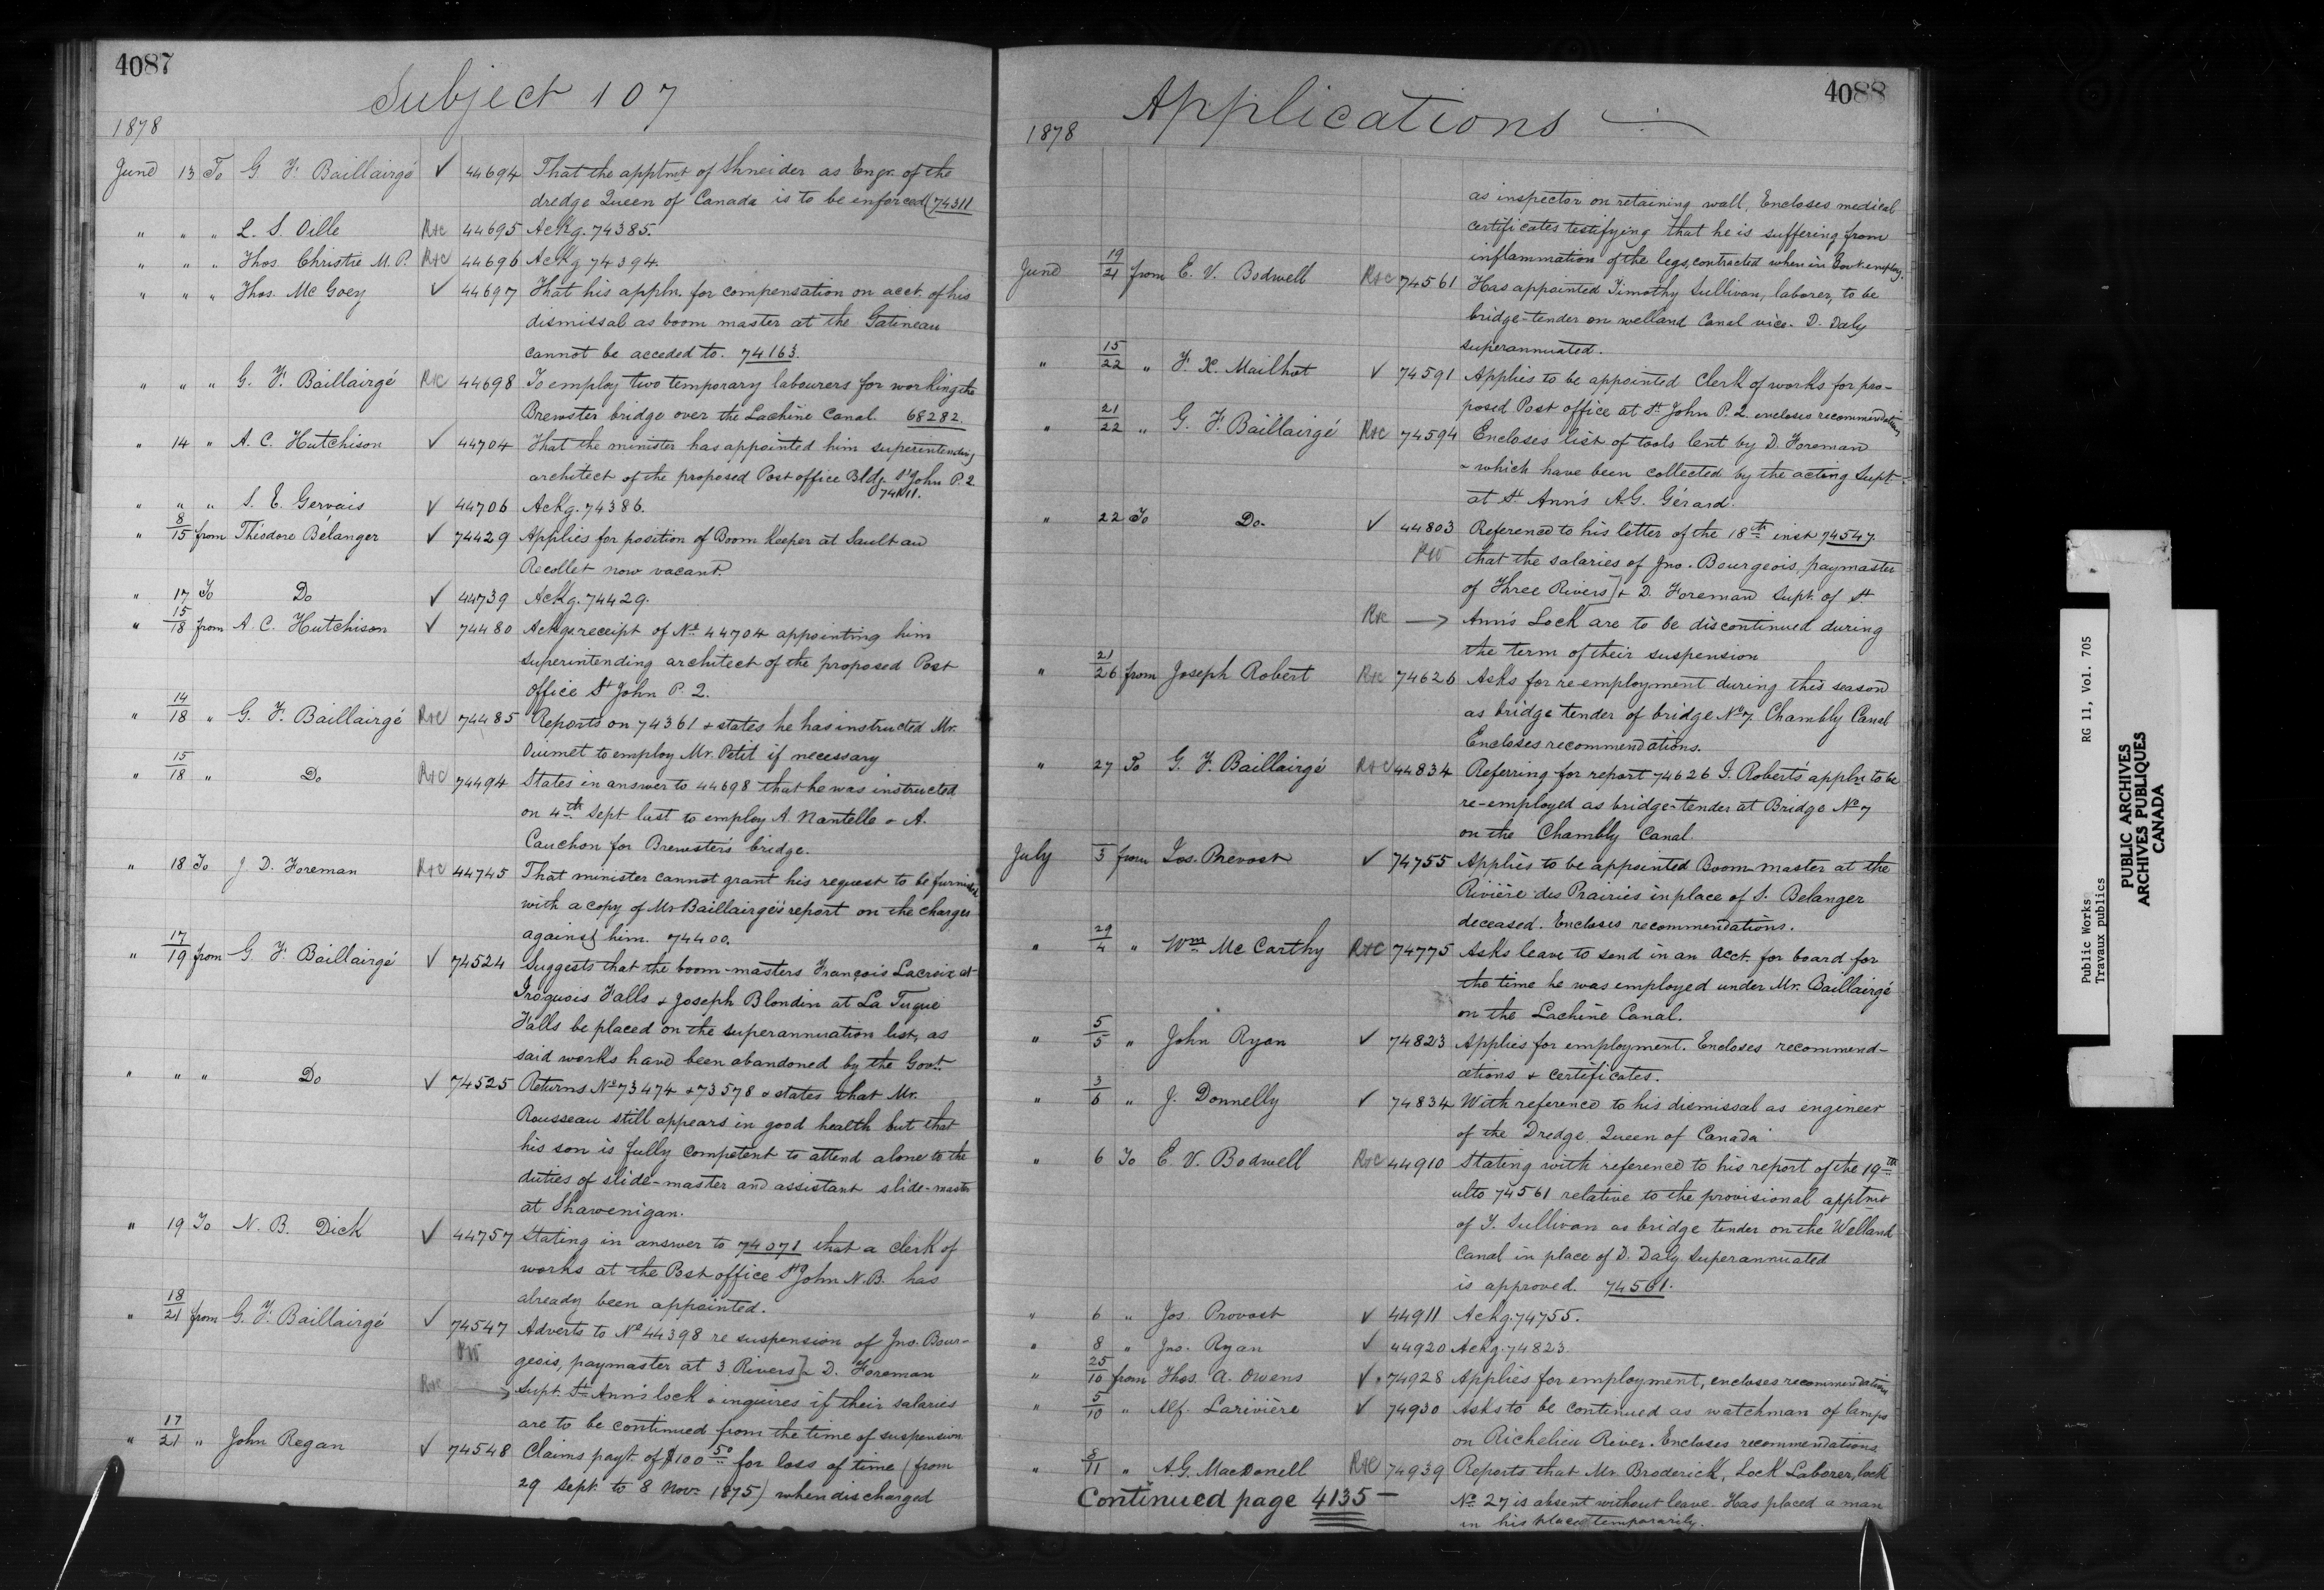 4087
Subject 107
1878
June 13 To G. F. Baillairgé ✓ 44694 That the apptmt of Shneider as Engr. of the
dredge Queen of Canada is to be enforced (74311
" " " L. S. Oille R+C 44695 Ackg. 74385.
" " " Thos. Christie M.P. R+C 44696 Ackg 74394.
" " " Thos. McGoey ✓ 44697 That his appln. for compensation on acct. of his
dismissal as boom master at the Gatineau
cannot be acceded to. 74163.
" " " G. F. Baillairgé R+C 44698 To employ two temporary labourers for working the
Brewster bridge over the Lachine Canal. 68282.
" 14 " A. C. Hutchison ✓ 44704 That the minister has appointed him superintending
architect of the proposed Post office Bldg. St John P.Q.
" " " S. E. Gervais ✓ 44706 Ackg. 74386.
" 8/15 from Théodore Bélanger ✓ 74429 Applies for position of Boom Keeper at Sault au
Recollet now vacant.
" 17 To Do ✓ 44739 Ackg. 74429.
" 15/18 from A. C. Hutchison ✓ 74480 Ackgs receipt of No 44704 appointing him
superintending architect of the proposed Post
office St John P.Q.
" 14/18 " G. F. Baillairgé R+C 74485 Reports on 74361 + states he has instructed Mr.
Ouimet to employ Mr. Petit if necessary
" 15/18 " Do R+C 74494 States in answer to 44698 that he was instructed
on 4th Sept last to employ A. Nantelle + A.
Cauchon for Brewster's bridge.
" 18 To J. D. Foreman R+C 44745 That minister cannot grant his request to be furnished
with a copy of Mr Baillairgé's report on the charges
against him. 74400.
" 17/19 from G. F. Baillairgé ✓ 74524 Suggests that the boom-masters François Lacroix at
Iroquois Falls + Joseph Blondin at La Tuque
Falls be placed on the superannuation list, as
said works have been abandoned by the Govt.
" " " Do ✓ 74525 Returns Nos 73474 + 73578 + states that Mr.
Rousseau still appears in good health but that
his son is fully competent to attend alone to the
duties of slide-master and assistant slide-master
at Shawenigan.
" 19 To N. B. Dick ✓ 44757 Stating in answer to 74071 that a Clerk of
works at the Post office St John N.B. has
already been appointed.
" 18/21 from G. F. Baillairgé ✓ 74547 Adverts to No 44398 re suspension of Jno. Bour-
PW geois, paymaster at 3 Rivers] + D. Foreman
R+C → Supt. St Ann's lock + inquires if their salaries
are to be continued from the time of suspension
" 17/21 " John Regan ✓ 74548 Claims payt. of $100 50 for loss of time (from
29 Sept. to 8 Novr. 1875) when discharged
4088
Applications
1878
as inspector on retaining wall. Encloses medical
certificates testifying that he is suffering from
inflammation of the legs, contracted when in Govt. employ.
June 19/21 from E. V. Bodwell R+C 74561 Has appointed Timothy Sullivan, laborer, to be
bridge-tender on Welland Canal vice. D. Daly
superannuated.
" 15/22 " F. X. Mailhot ✓ 74591 Applies to be appointed Clerk of works for pro-
posed Post office at St John P.Q. encloses recommendations
" 21/22 " G. F. Baillairgé R+C 74594 Encloses list of tools lent by D. Foreman
+ which have been collected by the acting Supt.
at St. Ann's A.G. Gérard.
" 22 To Do. ✓ 44803 Reference to his letter of the 18th inst 74547.
PW that the salaries of Jno. Bourgeois, paymaster
of Three Rivers] + D. Foreman Supt. of St.
R+C → Ann's Lock are to be discontinued during
the term of their suspension
" 21/26 from Joseph Robert R+C 74626 Asks for re-employment during this season
as bridge tender of bridge No 7 Chambly Canal
Encloses recommendations.
" 27 To G. F. Baillairgé R+C 44834 Referring for report 74626 J. Robert's appln to be
re-employed as bridge-tender at Bridge No 7
on the Chambly Canal.
July 3 from Jos. Prevost ✓ 74755 Applies to be appointed Boom master at the
Rivière des Prairies in place of S. Belanger
deceased. Encloses recommendations.
" 29/4 " Wm McCarthy R+C 74775 Asks leave to send in an acct. for board for
the time he was employed under Mr. Baillairgé
on the Lachine Canal.
" 5/5 " John Ryan ✓ 74823 Applies for employment. Encloses recommend-
ations + certificates.
" 3/6 " J. Donnelly ✓ 74834 With reference to his dismissal as engineer
of the Dredge Queen of Canada
" 6 To E. V. Bodwell R+C 44910 Stating with reference to his report of the 19th
ulto 74561 relative to the provisional apptmt
of T. Sullivan as bridge tender on the Welland
Canal in place of D. Daly Superannuated
is approved. 74561.
" 6 " Jos. Provost ✓ 44911 Ackg. 74755.
" 8 " Jno. Ryan ✓ 44920 Ackg. 74823.
" 25/10 from Thos. A. Owens ✓ 74928 Applies for employment, encloses recommendations
" 5/10 " Alf. Larivière ✓ 74930 Asks to be continued as watchman of lamps
on Richelieu River. Encloses recommendations
" 8/11 " A.G. MacDonell R+C 74939 Reports that Mr. Broderick, Lock Laborer, lock
No 27 is absent without leave. Has placed a man
in his place temporarily.
Continued page 4135 —
Public Works RG 11, Vol. 705
Travaux publics
PUBLIC ARCHIVES
ARCHIVES PUBLIQUES
CANADA